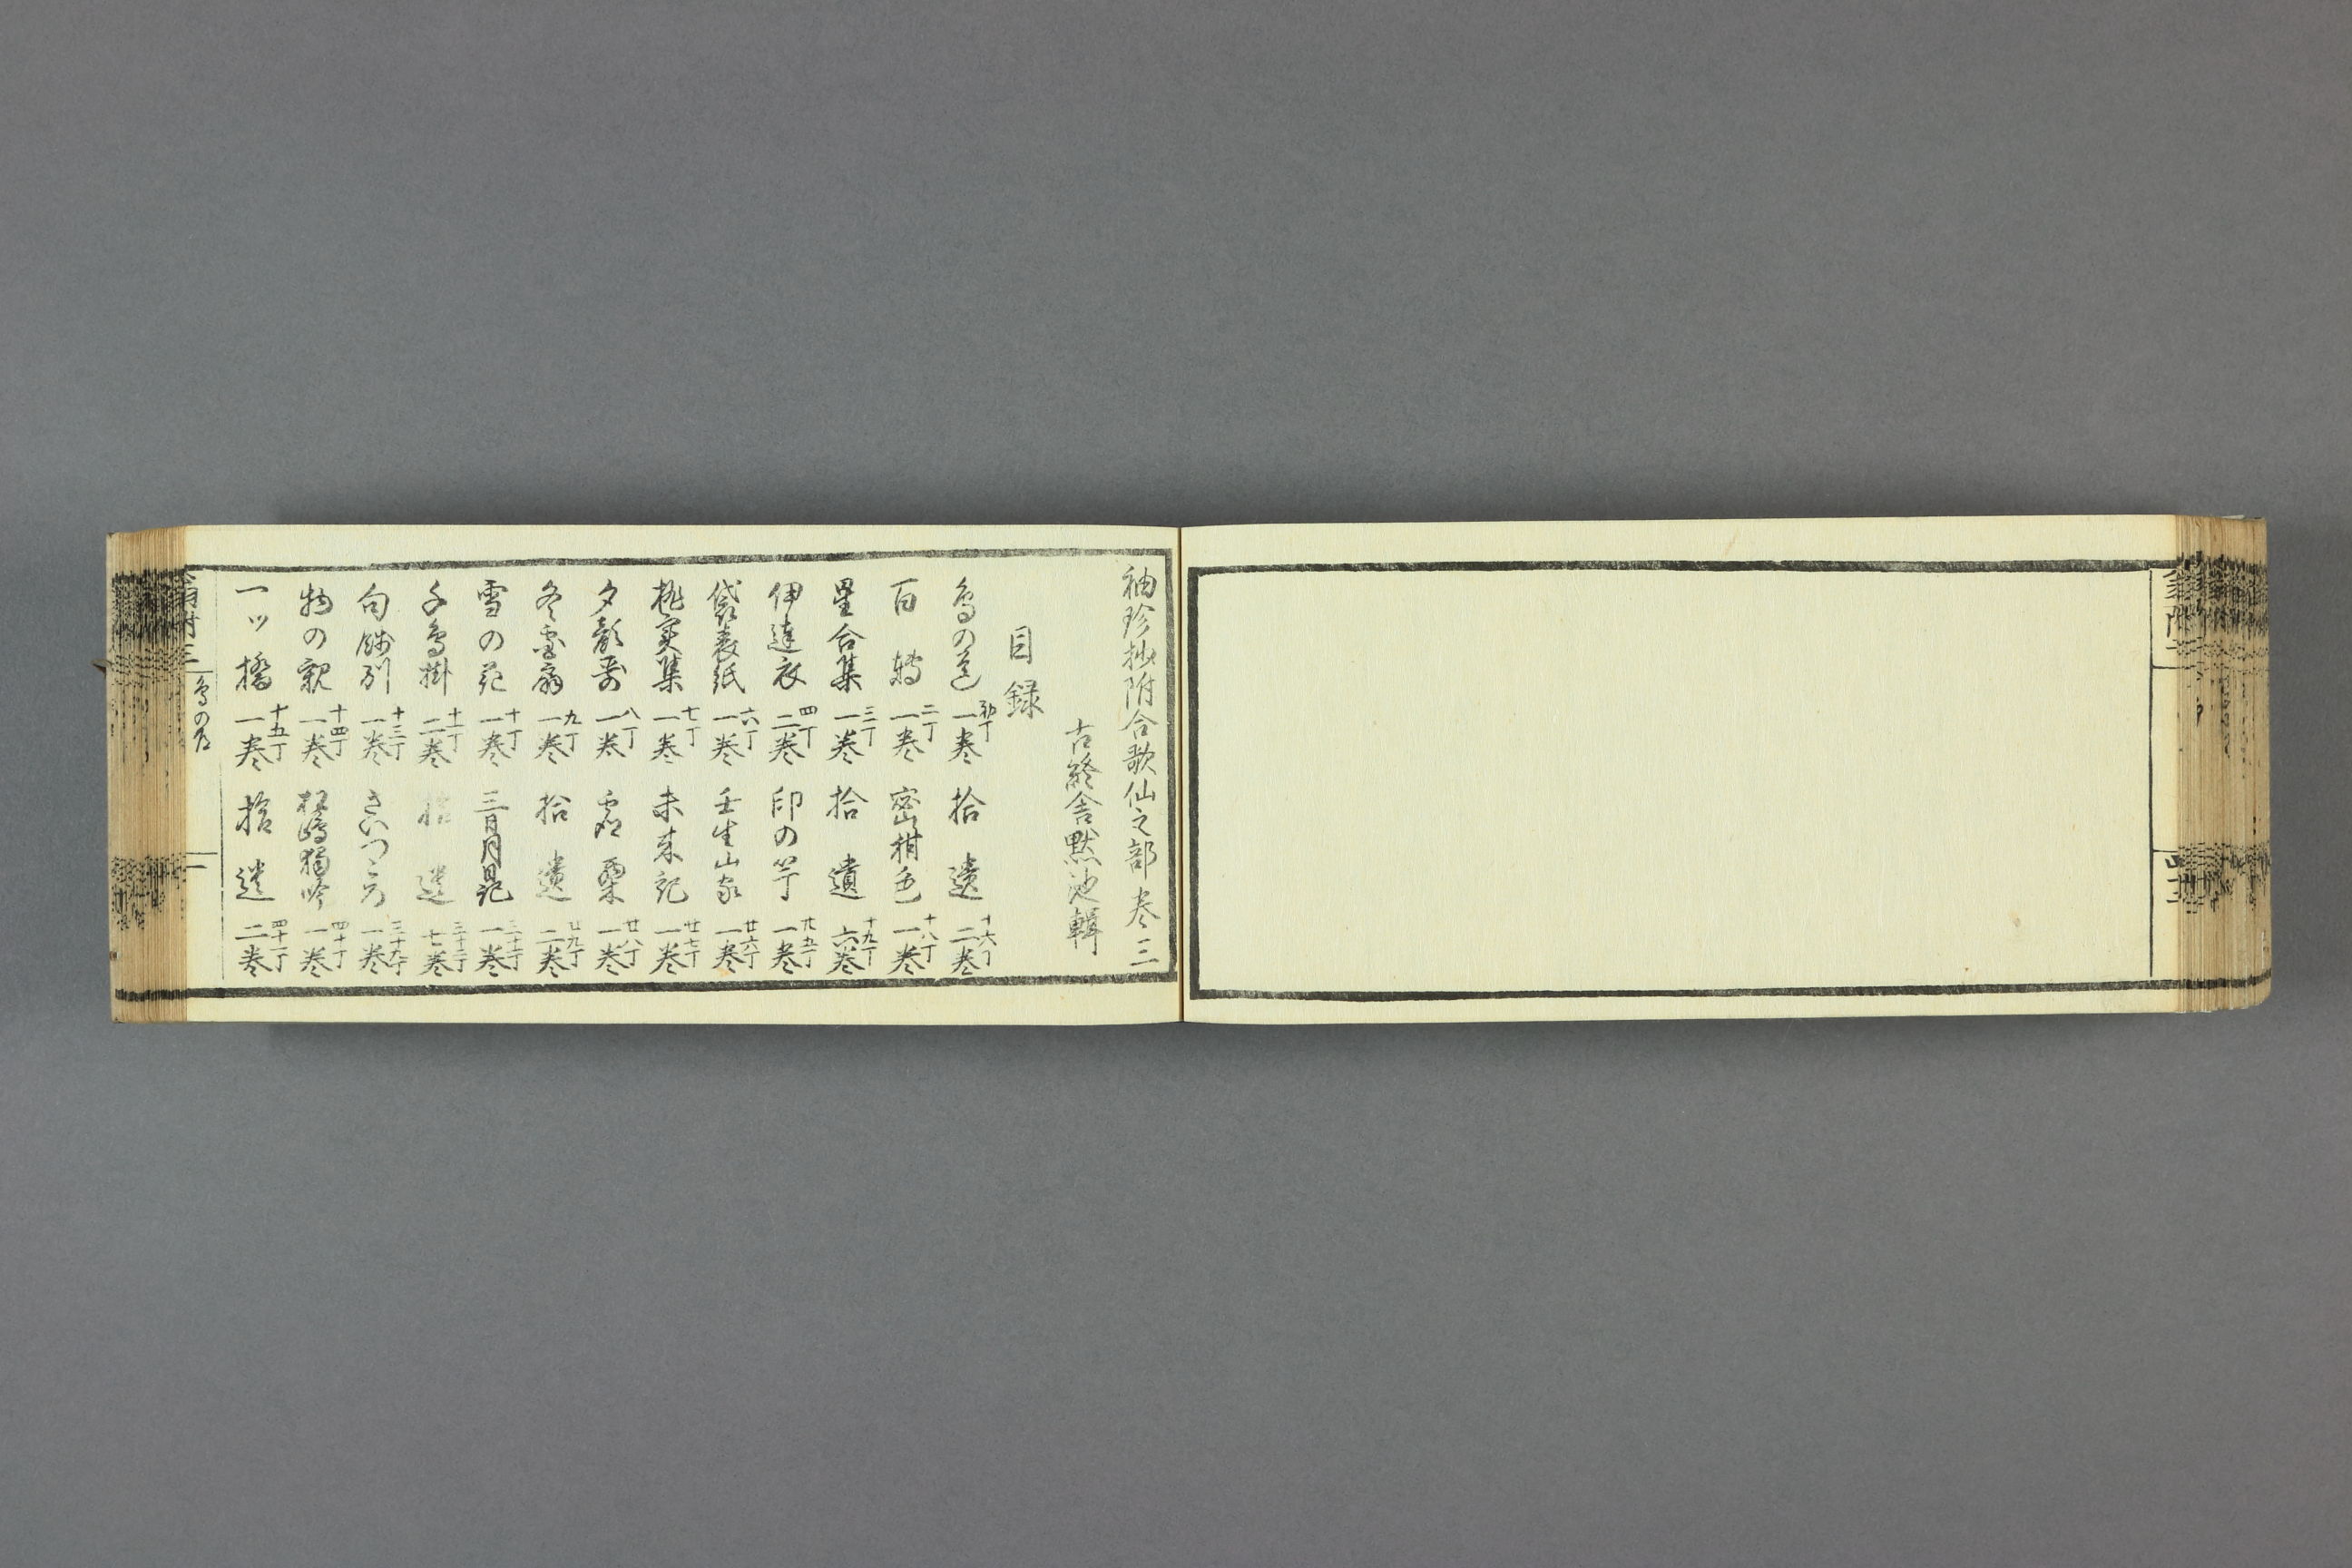 袖珍抄附合歌仙之部 巻三
古終舎黙池輯
目録
鳥の道 初丁 一巻 拾遺 十六丁 二巻
百囀 二丁 一巻 蜜柑色 十八丁 一巻
星合集 三丁 一巻 拾遺 十九丁 六巻
伊達衣 四丁 二巻 印の竿 廿五丁 一巻
袋表紙 六丁 一巻 壬生山家 廿六丁 一巻
桃実集 七丁 一巻 未来記 廿七丁 一巻
夕顔哥 八丁 一巻 虚栗 廿八丁 一巻
冬扇 九丁 一巻 拾遺 廿九丁 二巻
雪の花 十丁 一巻 三日月日記 三十一丁 一巻
千鳥掛 十一丁 二巻 拾遺 三十二丁 七巻
句餞別 十三丁 一巻 さいつころ 三十九丁 一巻
物の親 十四丁 一巻 独吟 四十丁 一巻
一ッ橋 十五丁 一巻 拾遺 四十一丁 二巻
翁附三 鳥の道 一